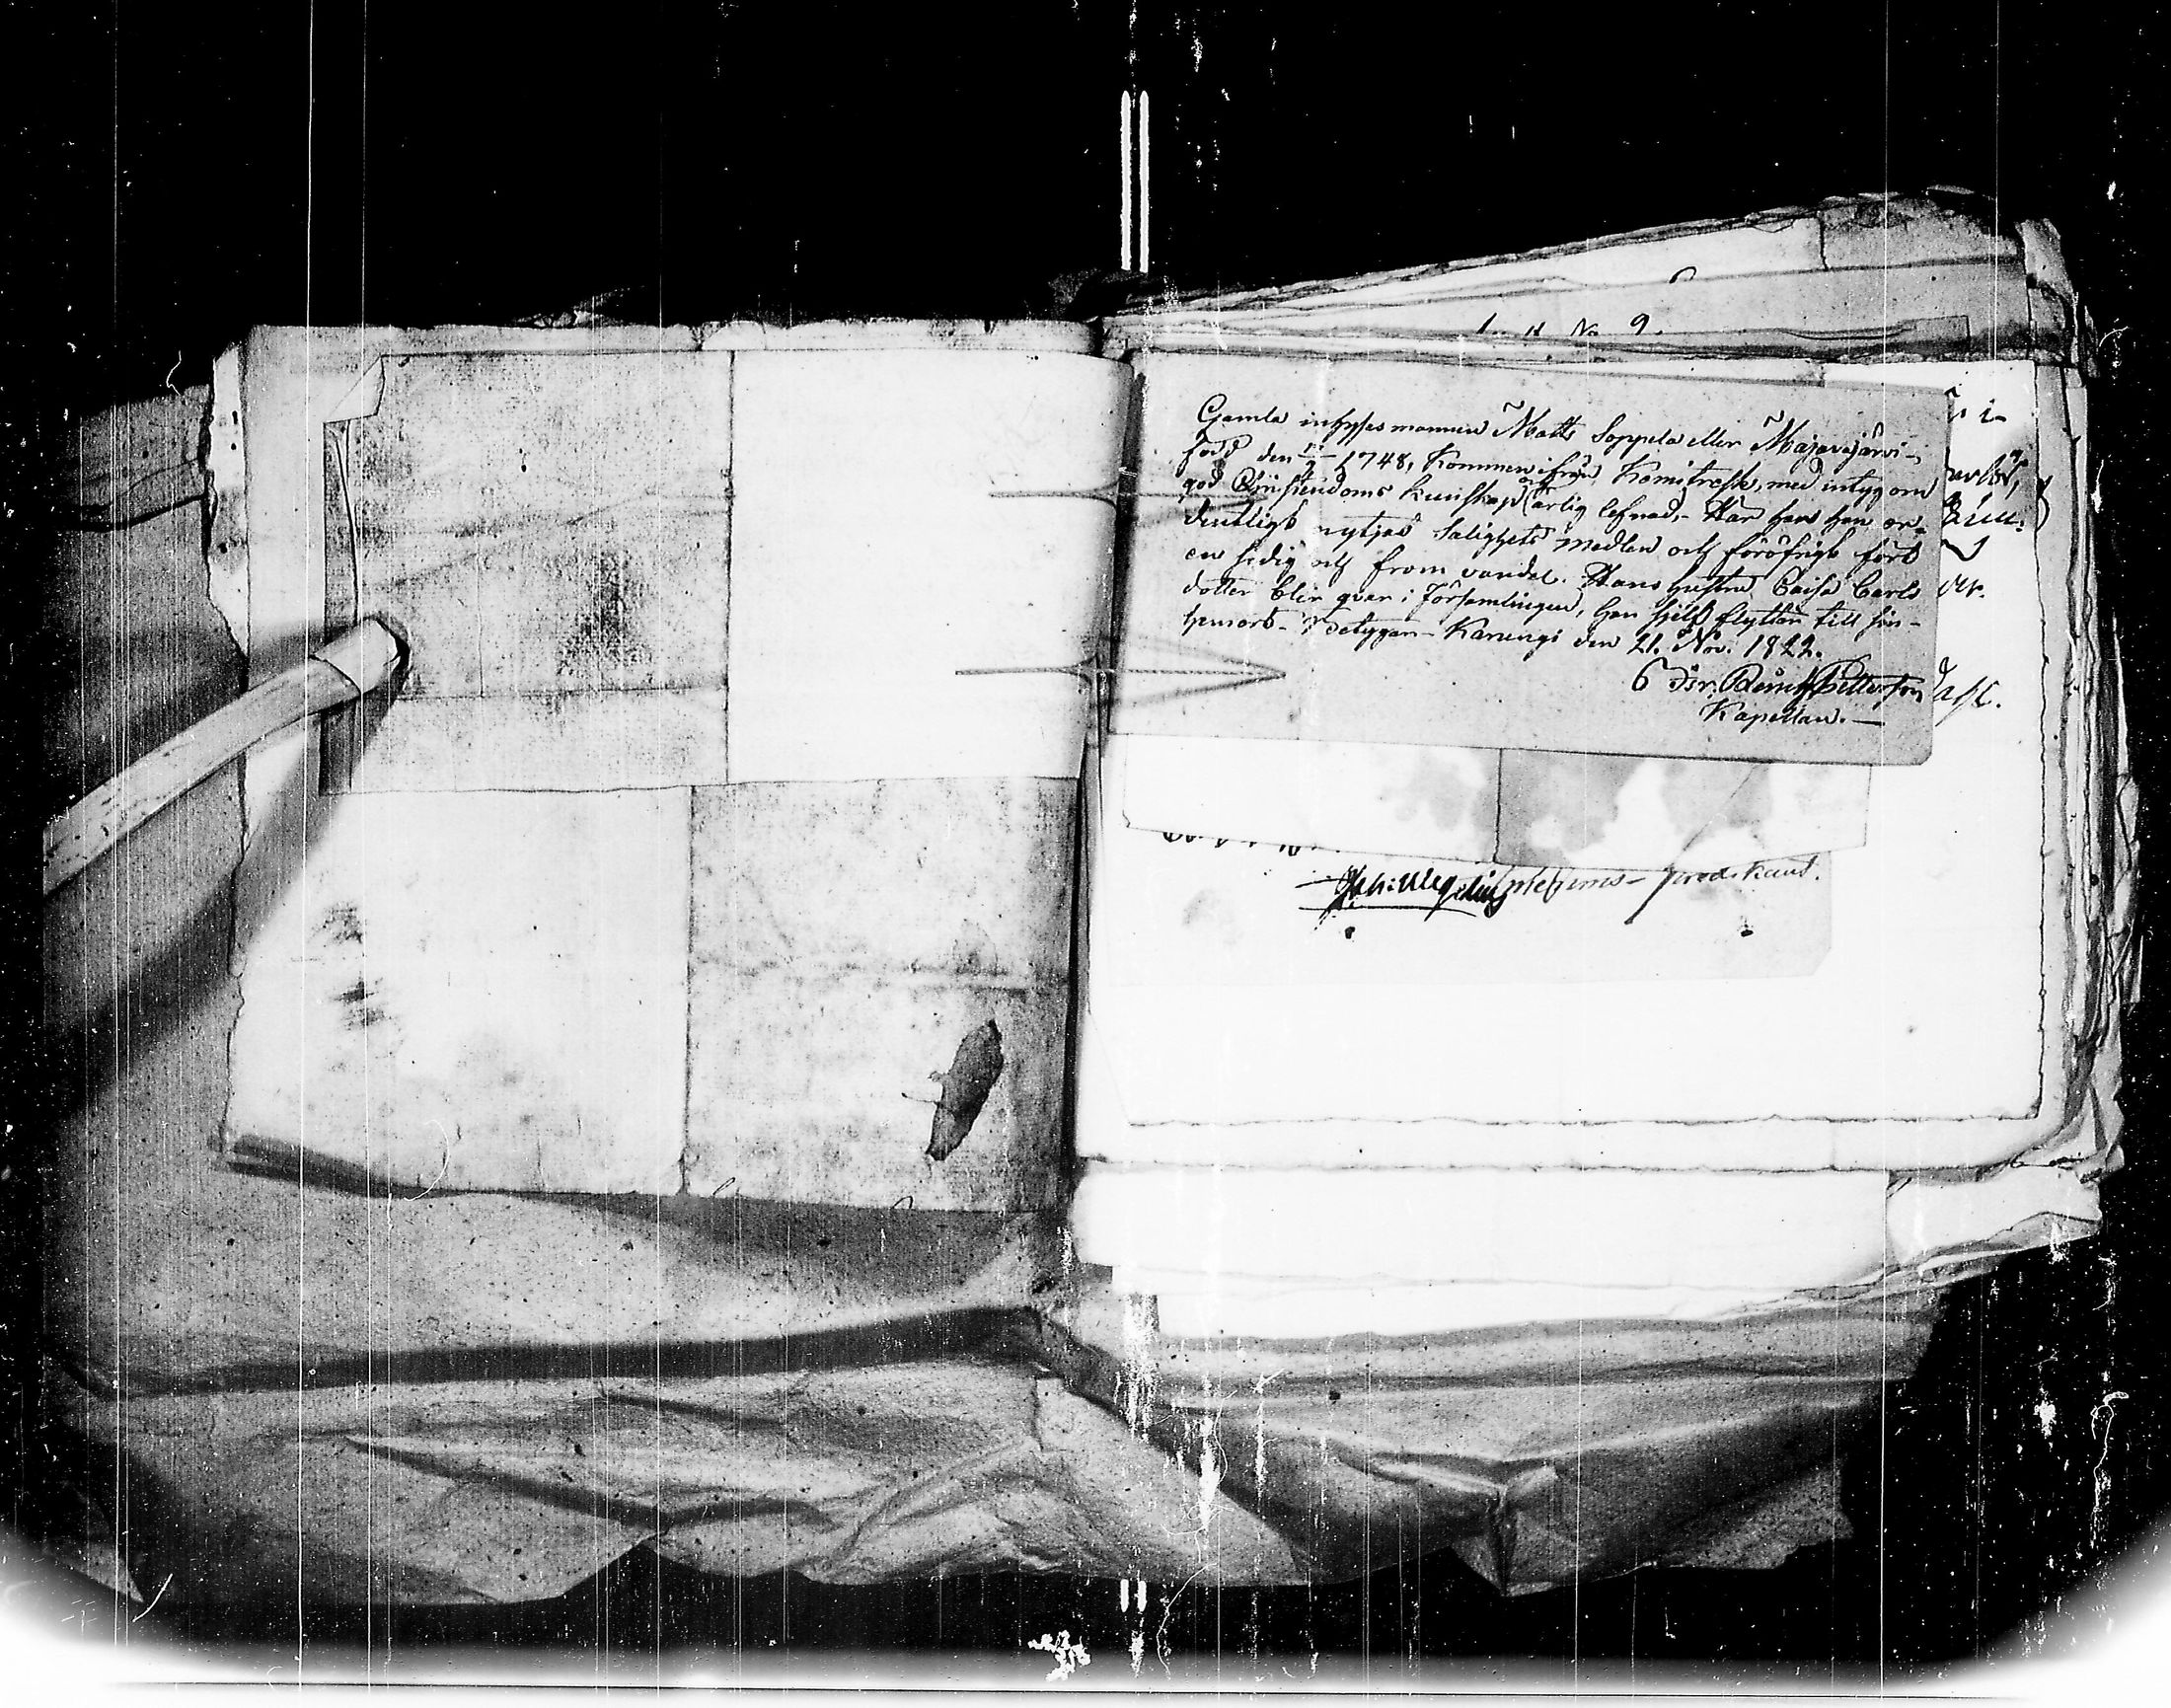 1 d No 9.
Gamla inhyses mannen Matts Soppela eller Majavajärvi-
född den 1748, Kommen ifrån Kemiträsk, med intyg om
god Christendoms kunskap och ärlig lefnad,- Här har han or-
dentligt nytjad Salighets medlen och föröfrigt fört
en sedig och from vandel. Hans hustru Caisa Carls
dotter blir qvar i Församlingen, han sjelf flyttar till sin-
hemort- Betygar- Karungi den 21. Nov. 1822.
Pettersson
Kapellan.-
predikant.